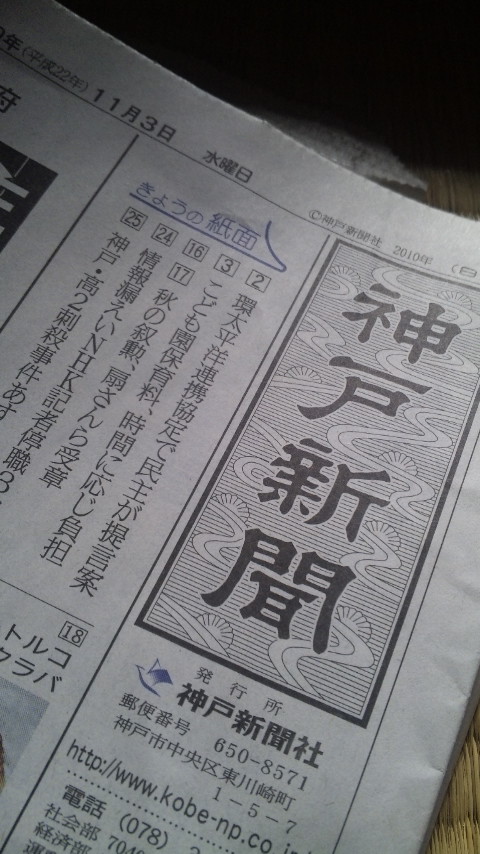 年(平成22年) 11月3日 水曜日
©神戸新聞社 2010年 (日
神戸新聞
きょうの紙面
2 環太平洋連携協定で民主が提言案
3 こども園保育料、時間に応じ負担
16 17 秋の叙勲、扇さんら受章
24 情報漏えいNHK記者停職3
25 神戸・高2刺殺事件あす
発行所
神戸新聞社
郵便番号 650-8571
神戸市中央区東川崎町
1-5-7
http://www.kobe-np.co.
電話 (078)
社会部
経済部
府
18
トルコ
クラバ